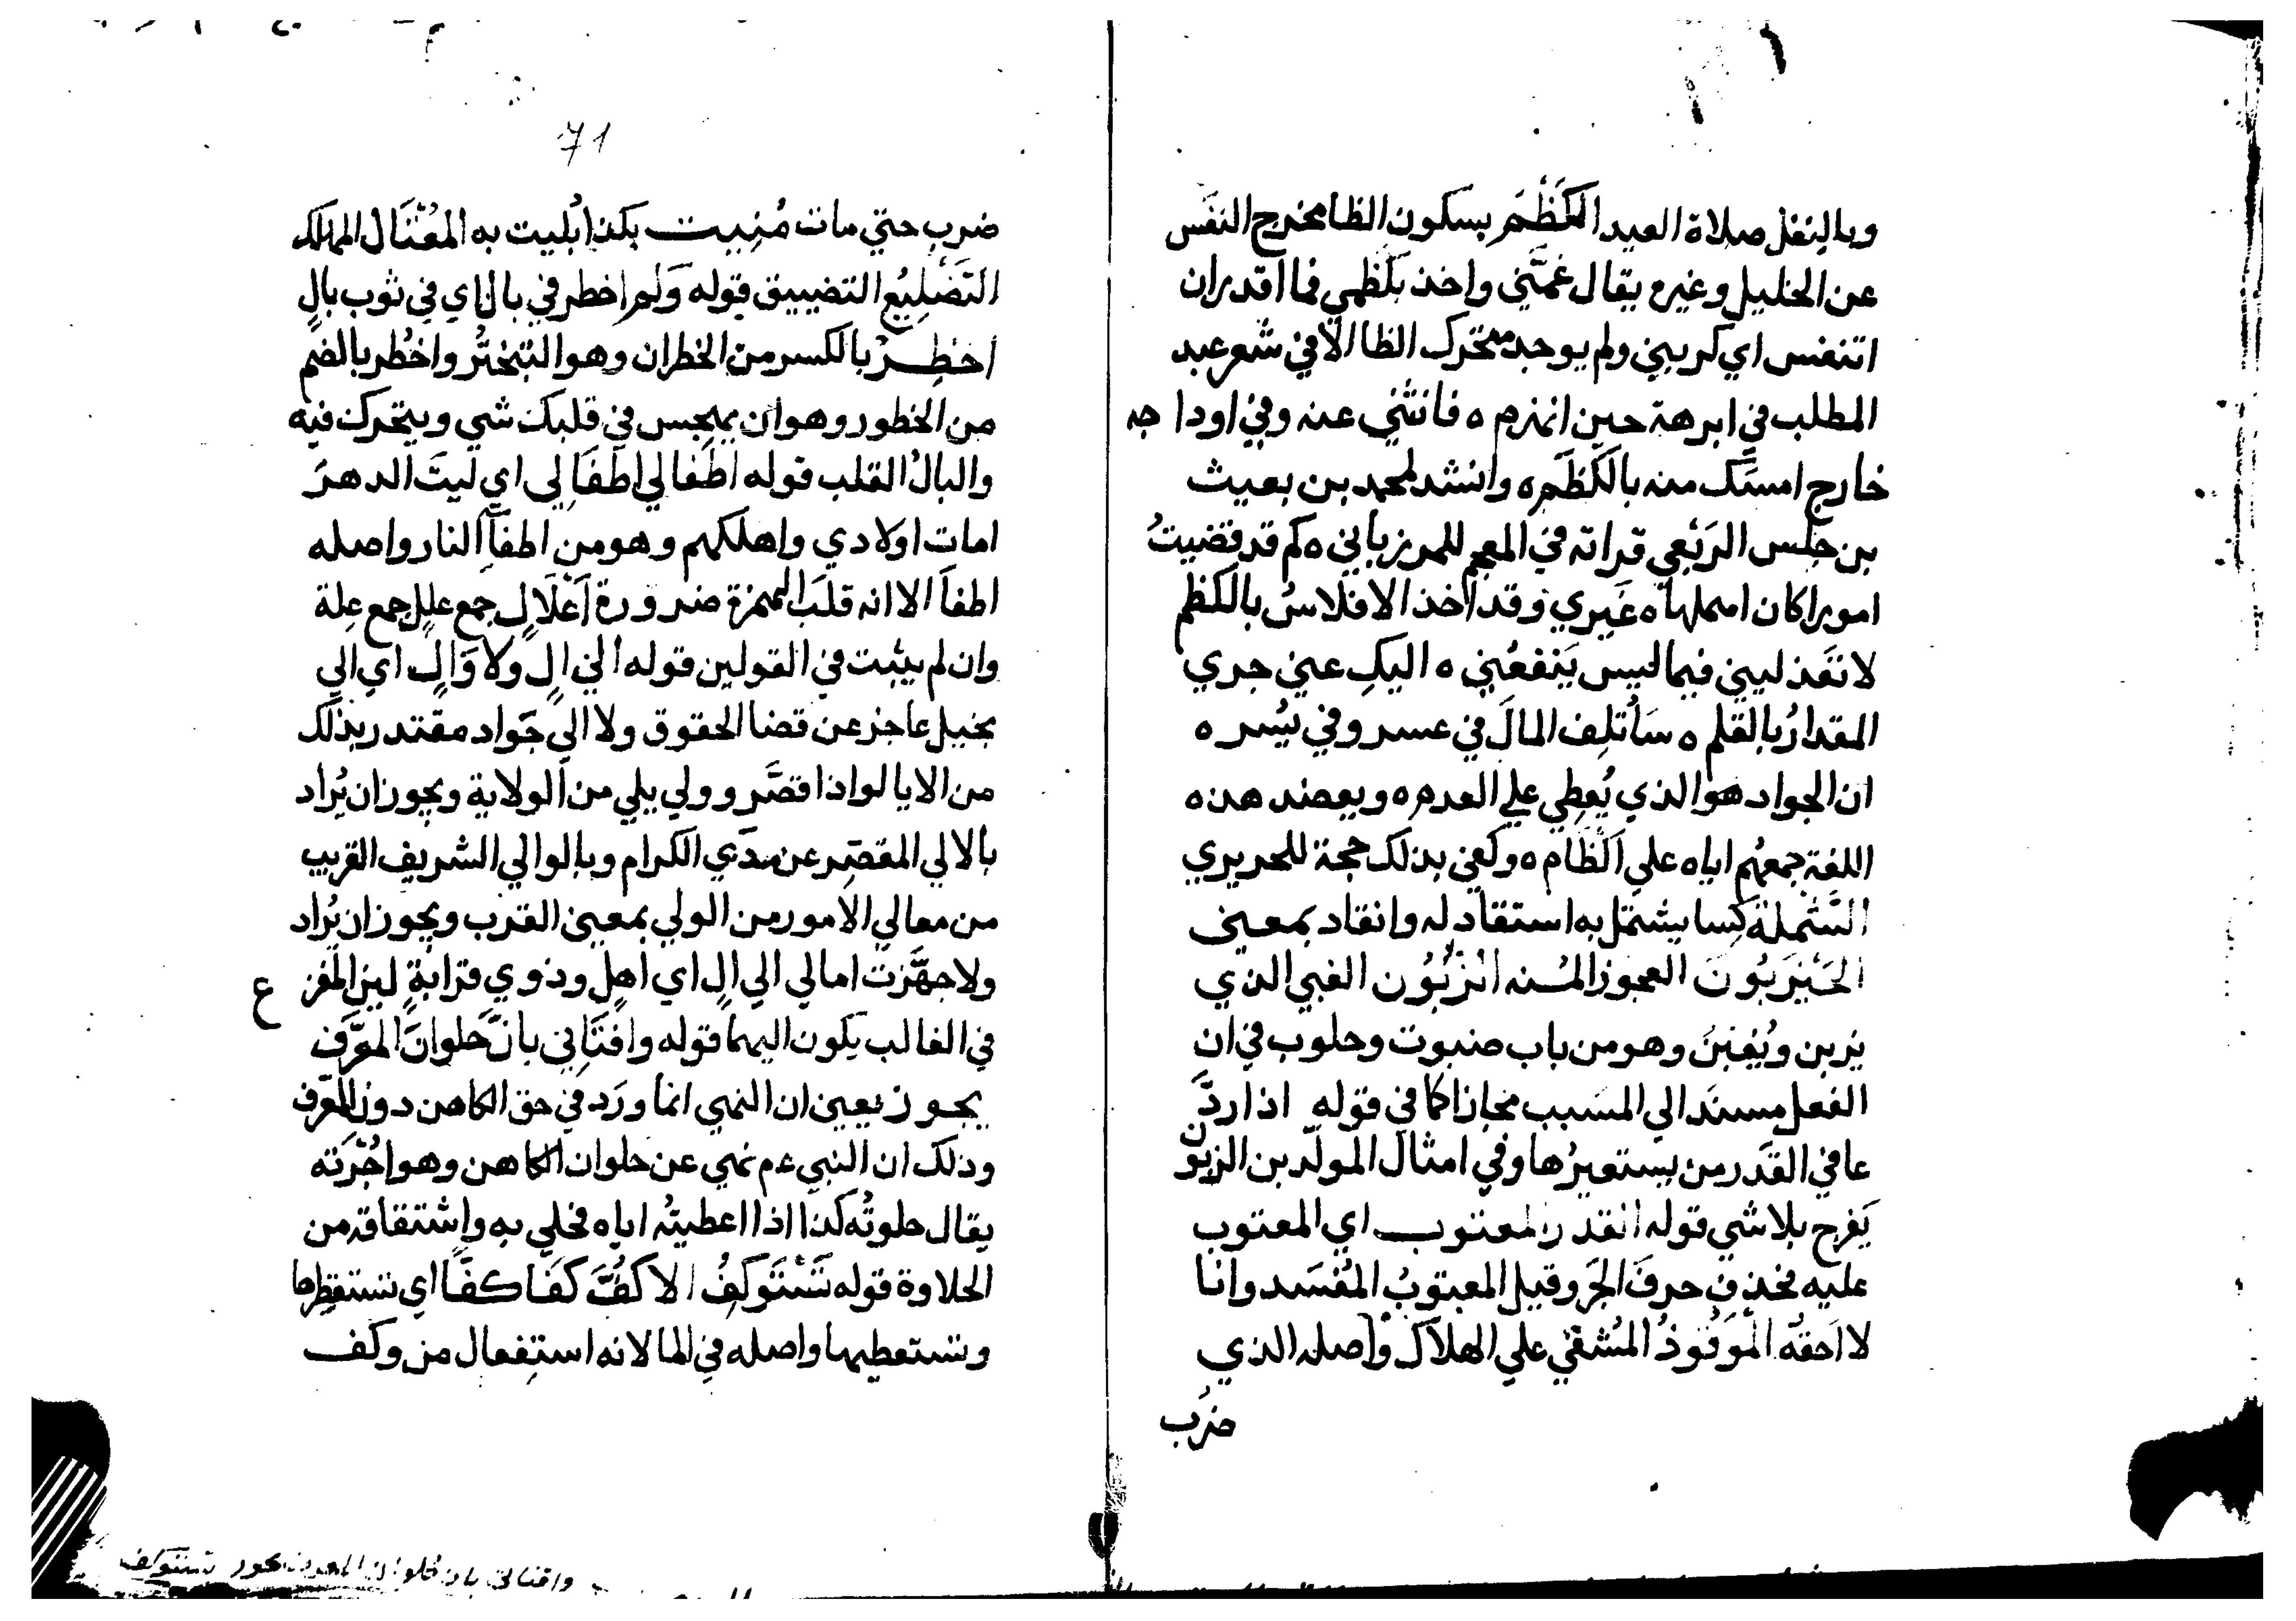 وبالنفل صلاة العيد الكَظْمَ بسكون الظا مخرج النفَس
عن الخليل وغيره يقال غمّني واخذ بكظمي فما اقدر ان
اتنفس اي كربني ولم يوجد متحرك الظا الا في شعر عبد
المطلب في ابرهة حين انهزم ه فانثني عنه وفي اوداجه
خارج امسَك منه بالكَظَم ه وانشد لمحمد بن بعيث
بن حلس الربَعي قراته في المعجم للمرزباني ه كم قد قضيتُ
امورا كان اهملها ه غَيري وقد اخذ الافلاسُ بالكظم
لا تعَذليني فيما ليس يَنفعُني ه اليكِ عني جري
المقدارُ بالقلم ه سَاُتلِف المالَ في عسر وفي يسُر ه
ان الجواد هو الذي يُعطِي علي العدم ه ويعضد هذه
اللغة جمعهُم اياه علي الكظام ه وكفي بذلك حجة للحريري
الشَّمْلة كِسا يشتمل به استقاد له وانقاد بمعني
الحَيْزَبُونَ العجوز المُسنه الزَبُون الغبي الذي
يزبن ويُغبَن وهو من باب ضبوت وحلوب في ان
الفعل مسنَد الي المسَبب مجازا كما في قوله اذا ردَّ
عافي القدَر من يستعيرُها وفي امثال المولّدين الزبون
يَفرح بلا شي قوله انقد المعتوب اي المعتوب
عليه فحذف حرفَ الجَر وقيل المعتوبُ المُفسَد وانا
لا احقه الموَقوذُ المُشفي علي الهلاك واصله الذي
ضرب
71
ضرب حتي مات مُنِيت بكذا اُبليت به المُغْتَال المهلك
التَضْلِيعُ التضييق قوله وَلم اخطر في بال اي في ثوب بالٍ
اخطِرْ بالكسر من الخطران وهو التبختُر واخطُر بالضم
من الخطور وهو ان يهجس في قلبك شي ويتحرك فيه
والبالُ القلب قوله اطفا لي اطفَا لي اي ليتَ الدهرَ
امات اولادي واهلكهم وهو من اطفاَ النار واصله
اطفاَ الا انه قلَب الهمزة ضرورة اَعْلَالٍ جمع عللٍ جمع عِلة
وان لم يثبت في القولين قوله الي الٍ ولا وَالٍ اي الي
بخيل عاجز عن قضا الحقوق ولا الي جَواد مقتدر بذلك
من الايالو اذا قصَّر وولي يلي من الولاية ويجوز ان يُراد
بالالي المقصِّر عن مدَي الكرام وبالوالي الشريف القريب
من معالي الامور من الولي بمعني القرب ويجوز ان يُراد
ولا جهَّزت امالي الي الٍ اي اهلٍ وذوي قرابةٍ لين المفزع
في الغالب يكون اليهما قوله وافتَاني بانّ حلوانَ المعرّف
يجوز يعين ان النهي انما ورَد في حق الكاهن دون المعرّف
وذلك ان النبي عم نهي عن حلوان الكاهن وهو اُجْرَته
يقال حلوتُه كذا اذا اعطيتُه اياه فحلي به واشتقاقه من
الحلاوة قوله تَسْتَوكِفُ الاكفُّ كفَّا كفَّا اي تستقطرها
وتستعطيها واصله في الما لانه استفعال من وكف
وافتاني بان حلوان المعرف يجوز تستوكف